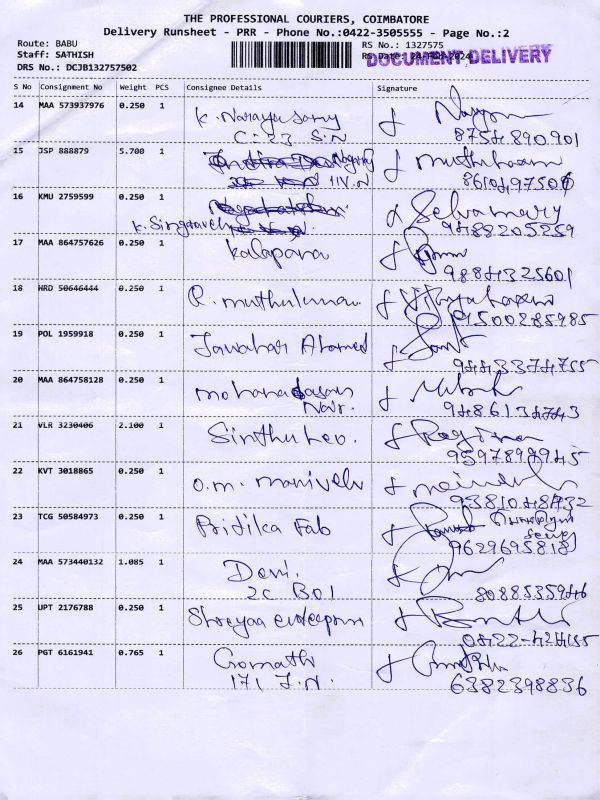 THE PROFESSIONAL COURIERS, COIMBATORE
Delivery Runsheet - PRR - Phone No.:0422-3505555 - Page No.:2
Route: BABU
Staff: SATHISH
DRS No.: DCJB132757502
RS No.: 1327575
RS Date: 24-Feb-2024
DOCUMENT DELIVERY
S No Consignment No Weight PCS Consignee Details Signature
14 MAA 573937976 0.250 1 K. Narayasamy
C-23 S.N 8754890901
15 JSP 888879 5.700 1
11V.N
16 KMU 2759599 0.250 1 Selvamary
K. Singaravel 9488205259
17 MAA 864757626 0.250 1 Kalapana
9884325601
18 HRD 50646444 0.250 1 R. muthukumar
9500285985
19 POL 1959918 0.250 1 Jawahar Ahamed
9443374755
20 MAA 864758128 0.250 1 mohanadasan
Nair. 9486134743
21 VLR 3230406 2.100 1
9597899945
22 KVT 3018865 0.250 1 O.m. manivelu
9381048432
23 TCG 50584973 0.250 1 Pritika Fab
9629695818
24 MAA 573440132 1.085 1 Devi.
2C B01 8088535946
25 UPT 2176788 0.250 1
0422-424155
26 PGT 6161941 0.765 1 Gomathi
171 J.N. 6382398836